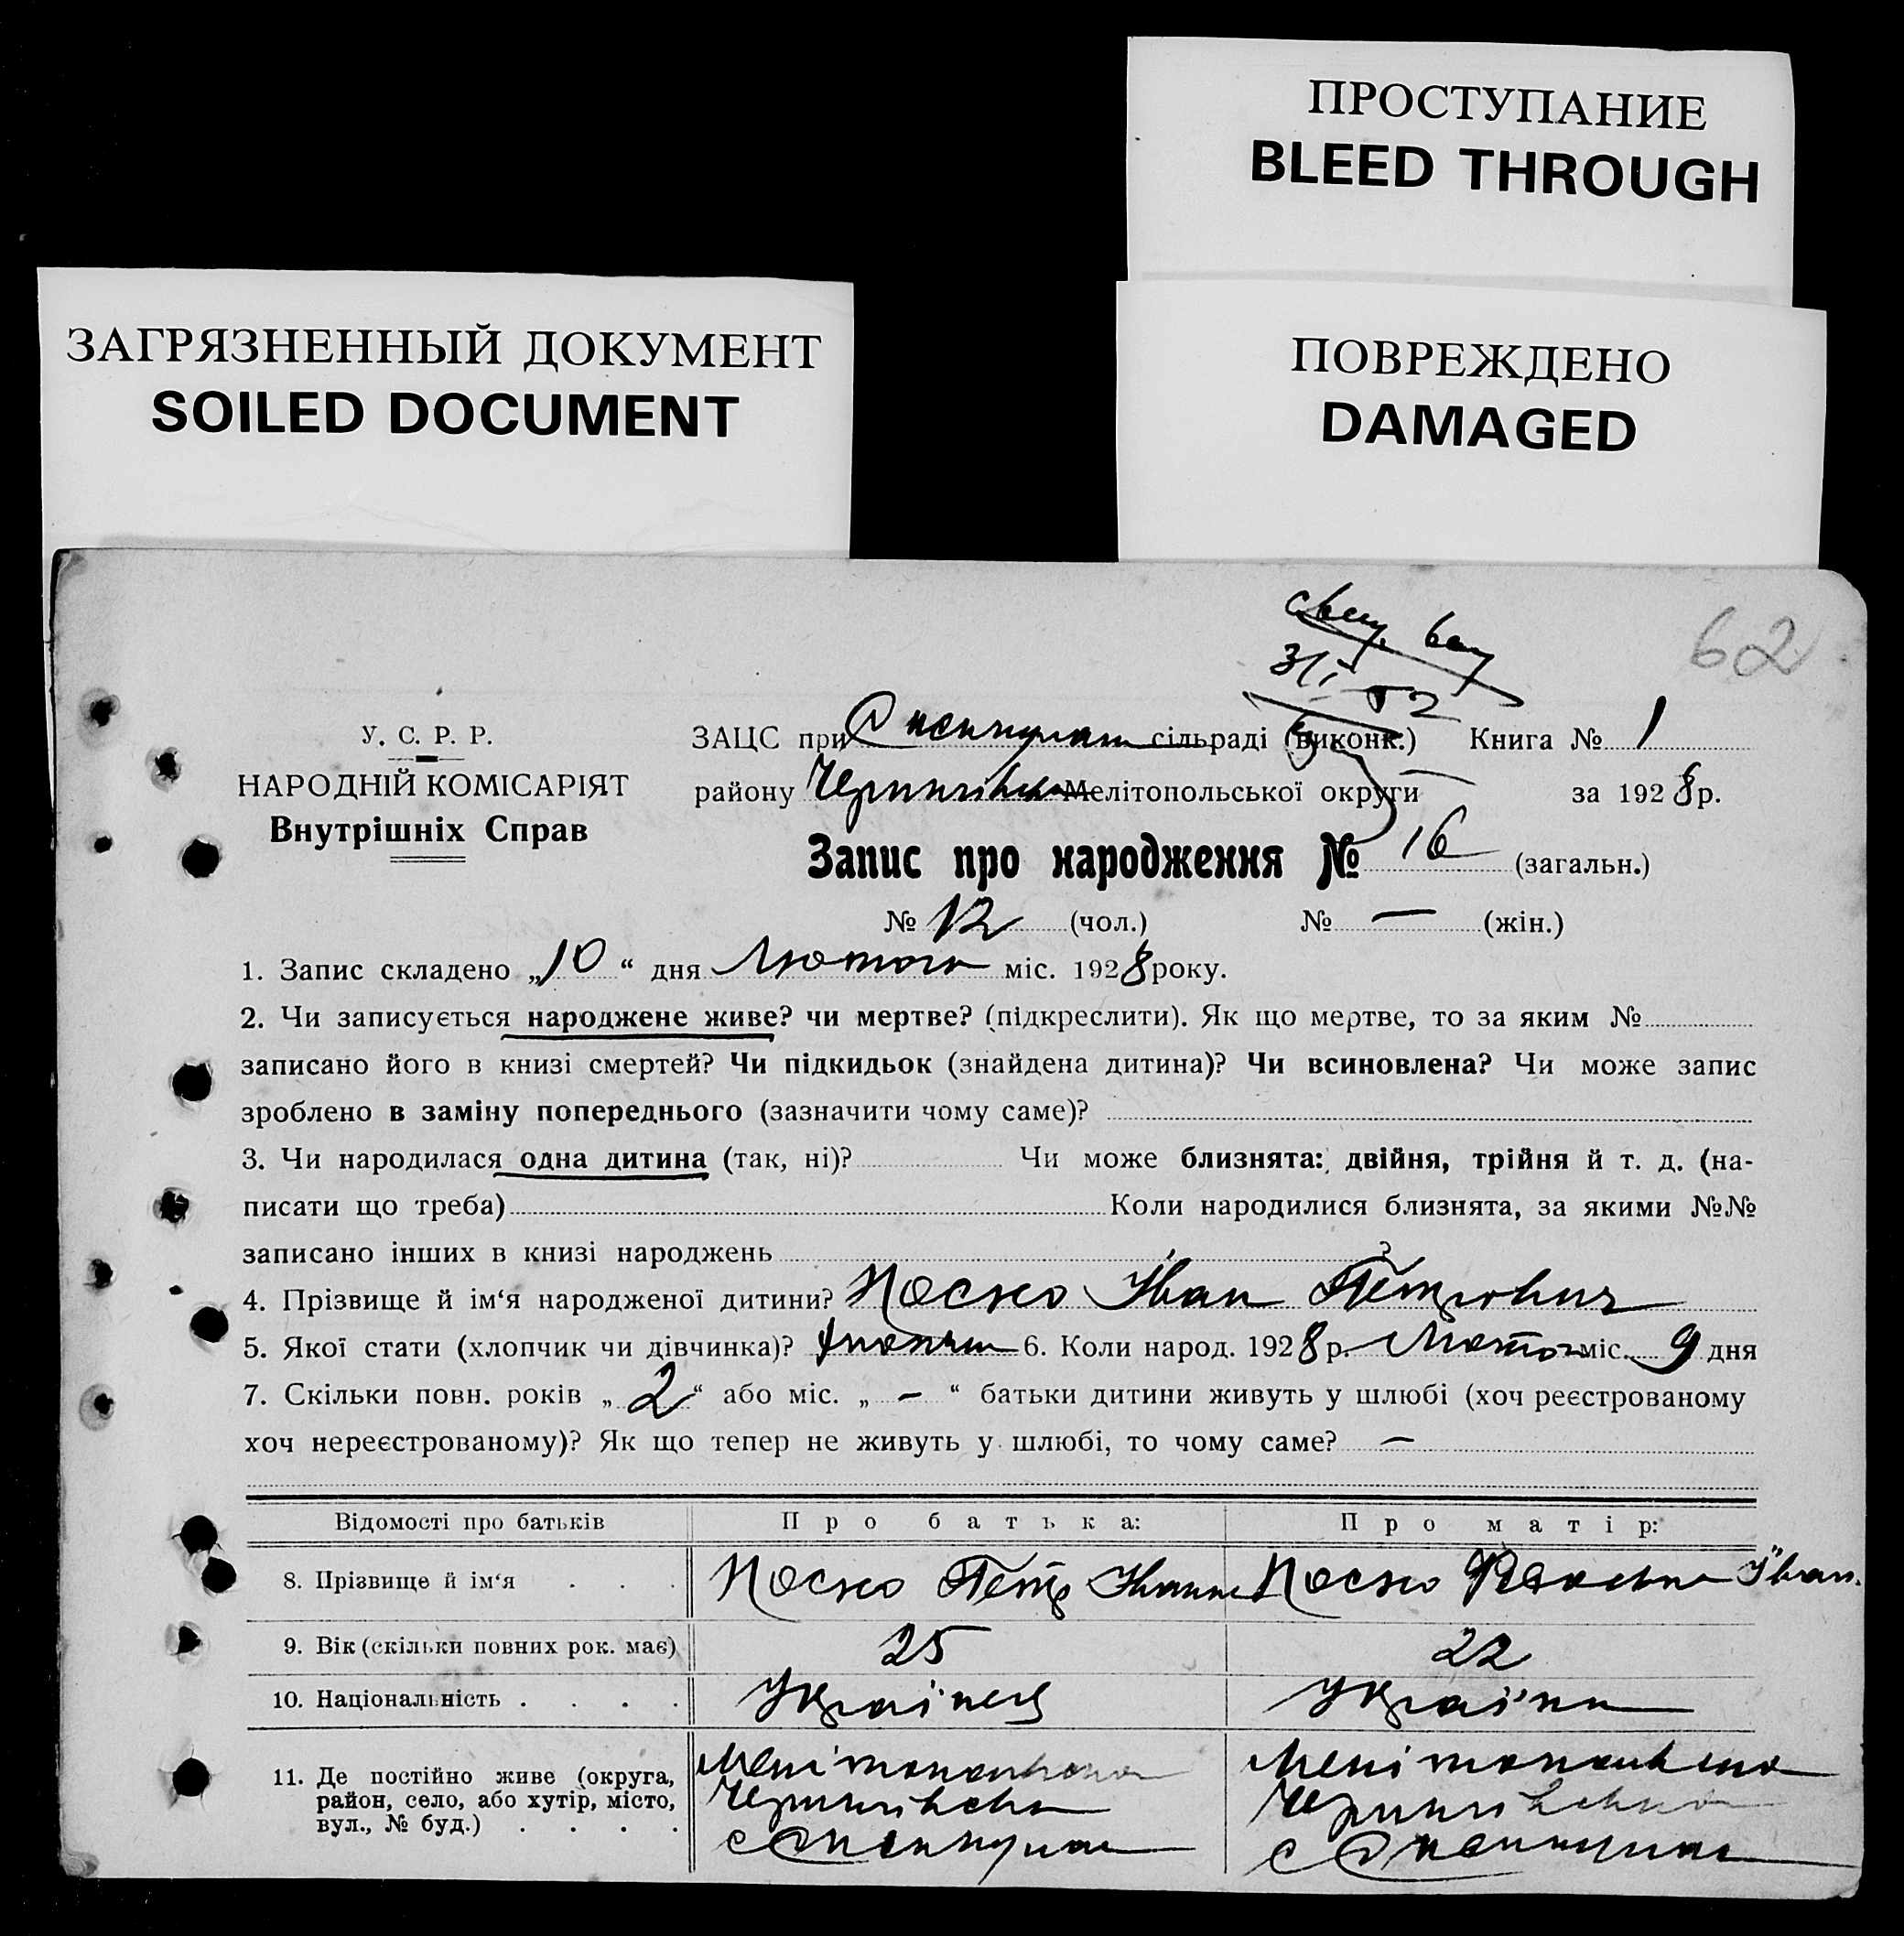 ПРОСТУПАНИЕ
BLEED THROUGH
ЗАГРЯЗНЕННЫЙ ДОКУМЕНТ
SOILED DOCUMENT
ПОВРЕЖДЕНО
DAMAGED
62
У. С. Р. Р.
НАРОДНІЙ КОМІСАРІЯТ
Внутрішніх Справ
ЗАЦС при сільраді (виконк.) Книга № 1
району Чернигівсько Мелітопольської округи за 1928 р.
Запис про народження № 16 (загальн.)
№ 12 (чол.) № — (жін.)
1. Запис складено „10“ дня Лютого міс. 1928 року.
2. Чи записується народжене живе? чи мертве? (підкреслити). Як що мертве, то за яким №
записано його в книзі смертей? Чи підкидьок (знайдена дитина)? Чи всиновлена? Чи може запис
зроблено в заміну попереднього (зазначити чому саме)?
3. Чи народилася одна дитина (так, ні)? Чи може близнята: двійня, трійня й т. д. (на-
писати що треба) Коли народилися близнята, за якими №№
записано інших в книзі народжень ?
4. Прізвище й ім‘я народженої дитини? Носко Іван Петрович
5. Якої стати (хлопчик чи дівчинка)? хлопчик 6. Коли народ. 1928 р. Лютого міс. 9 дня
7. Скільки повн. років „2“ або міс. „—“ батьки дитини живуть у шлюбі (хоч реєстрованому
хоч нереєстрованому)? Як що тепер не живуть у шлюбі, то чому саме? —
Відомості про батьків Про батька: Про матір:
8. Прізвище й ім‘я . . . Носко Петр Носко Іван.
9. Вік (скільки повних рок. має) 25 22
10. Національність . . . . Українець Українка
11. Де постійно живе (округа, район, село, або хутір, місто, вул., № буд.) . . . .
Мелітопольська
Чернигівська
с
Мелітопольська
Чернигівська
с